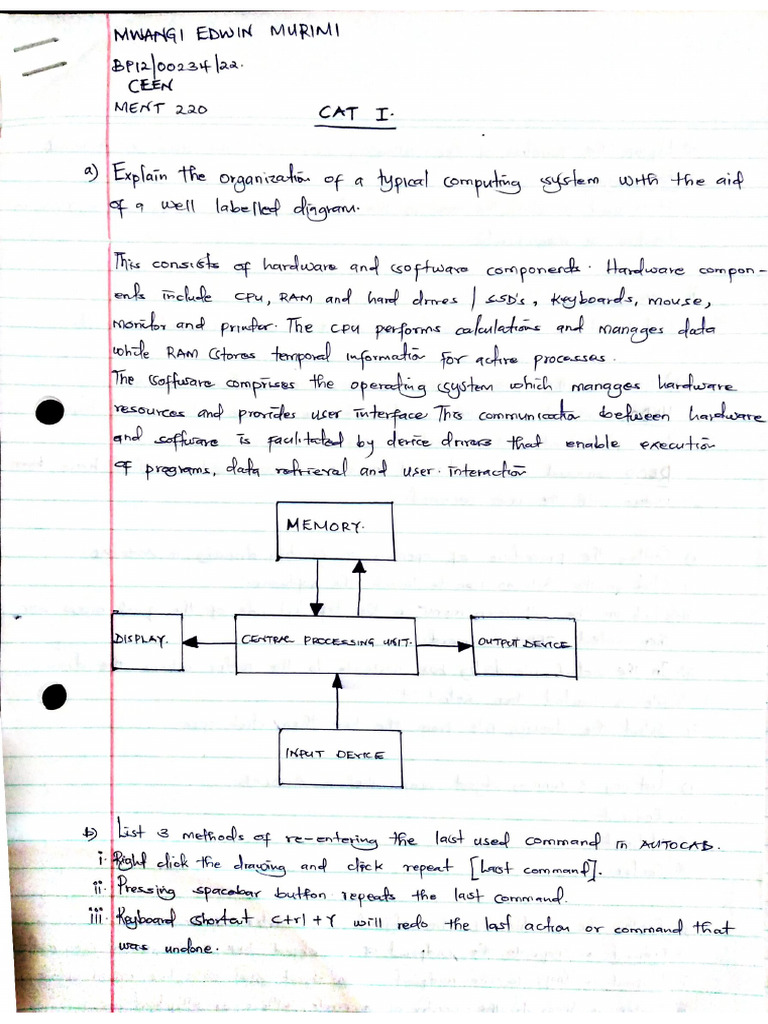 MWANGI EDWIN MURIMI
BP12/00234/22.
CEEN
MENT 220
CAT I.
a) Explain the organization of a typical computing system with the aid
of a well labelled diagram.
This consists of hardware and software components. Hardware compon-
ents include CPU, RAM and hard drives / SSD's, keyboards, mouse,
monitor and printer. The CPU performs calculations and manages data
while RAM stores temporal information for active processes.
The software comprises the operating system which manages hardware
resources and provides user interface. This communication between hardware
and software is facilitated by device drivers that enable execution
of programs, data retrieval and user interaction
MEMORY.
DISPLAY.
CENTRAL PROCESSING UNIT.
OUTPUT DEVICE
INPUT DEVICE
b) List 3 methods of re-entering the last used command in AUTOCAD.
i. Right click the drawing and click repeat [Last command].
ii. Pressing spacebar button repeats the last command.
iii. Keyboard shortcut ctrl+Y will redo the last action or command that
was undone.